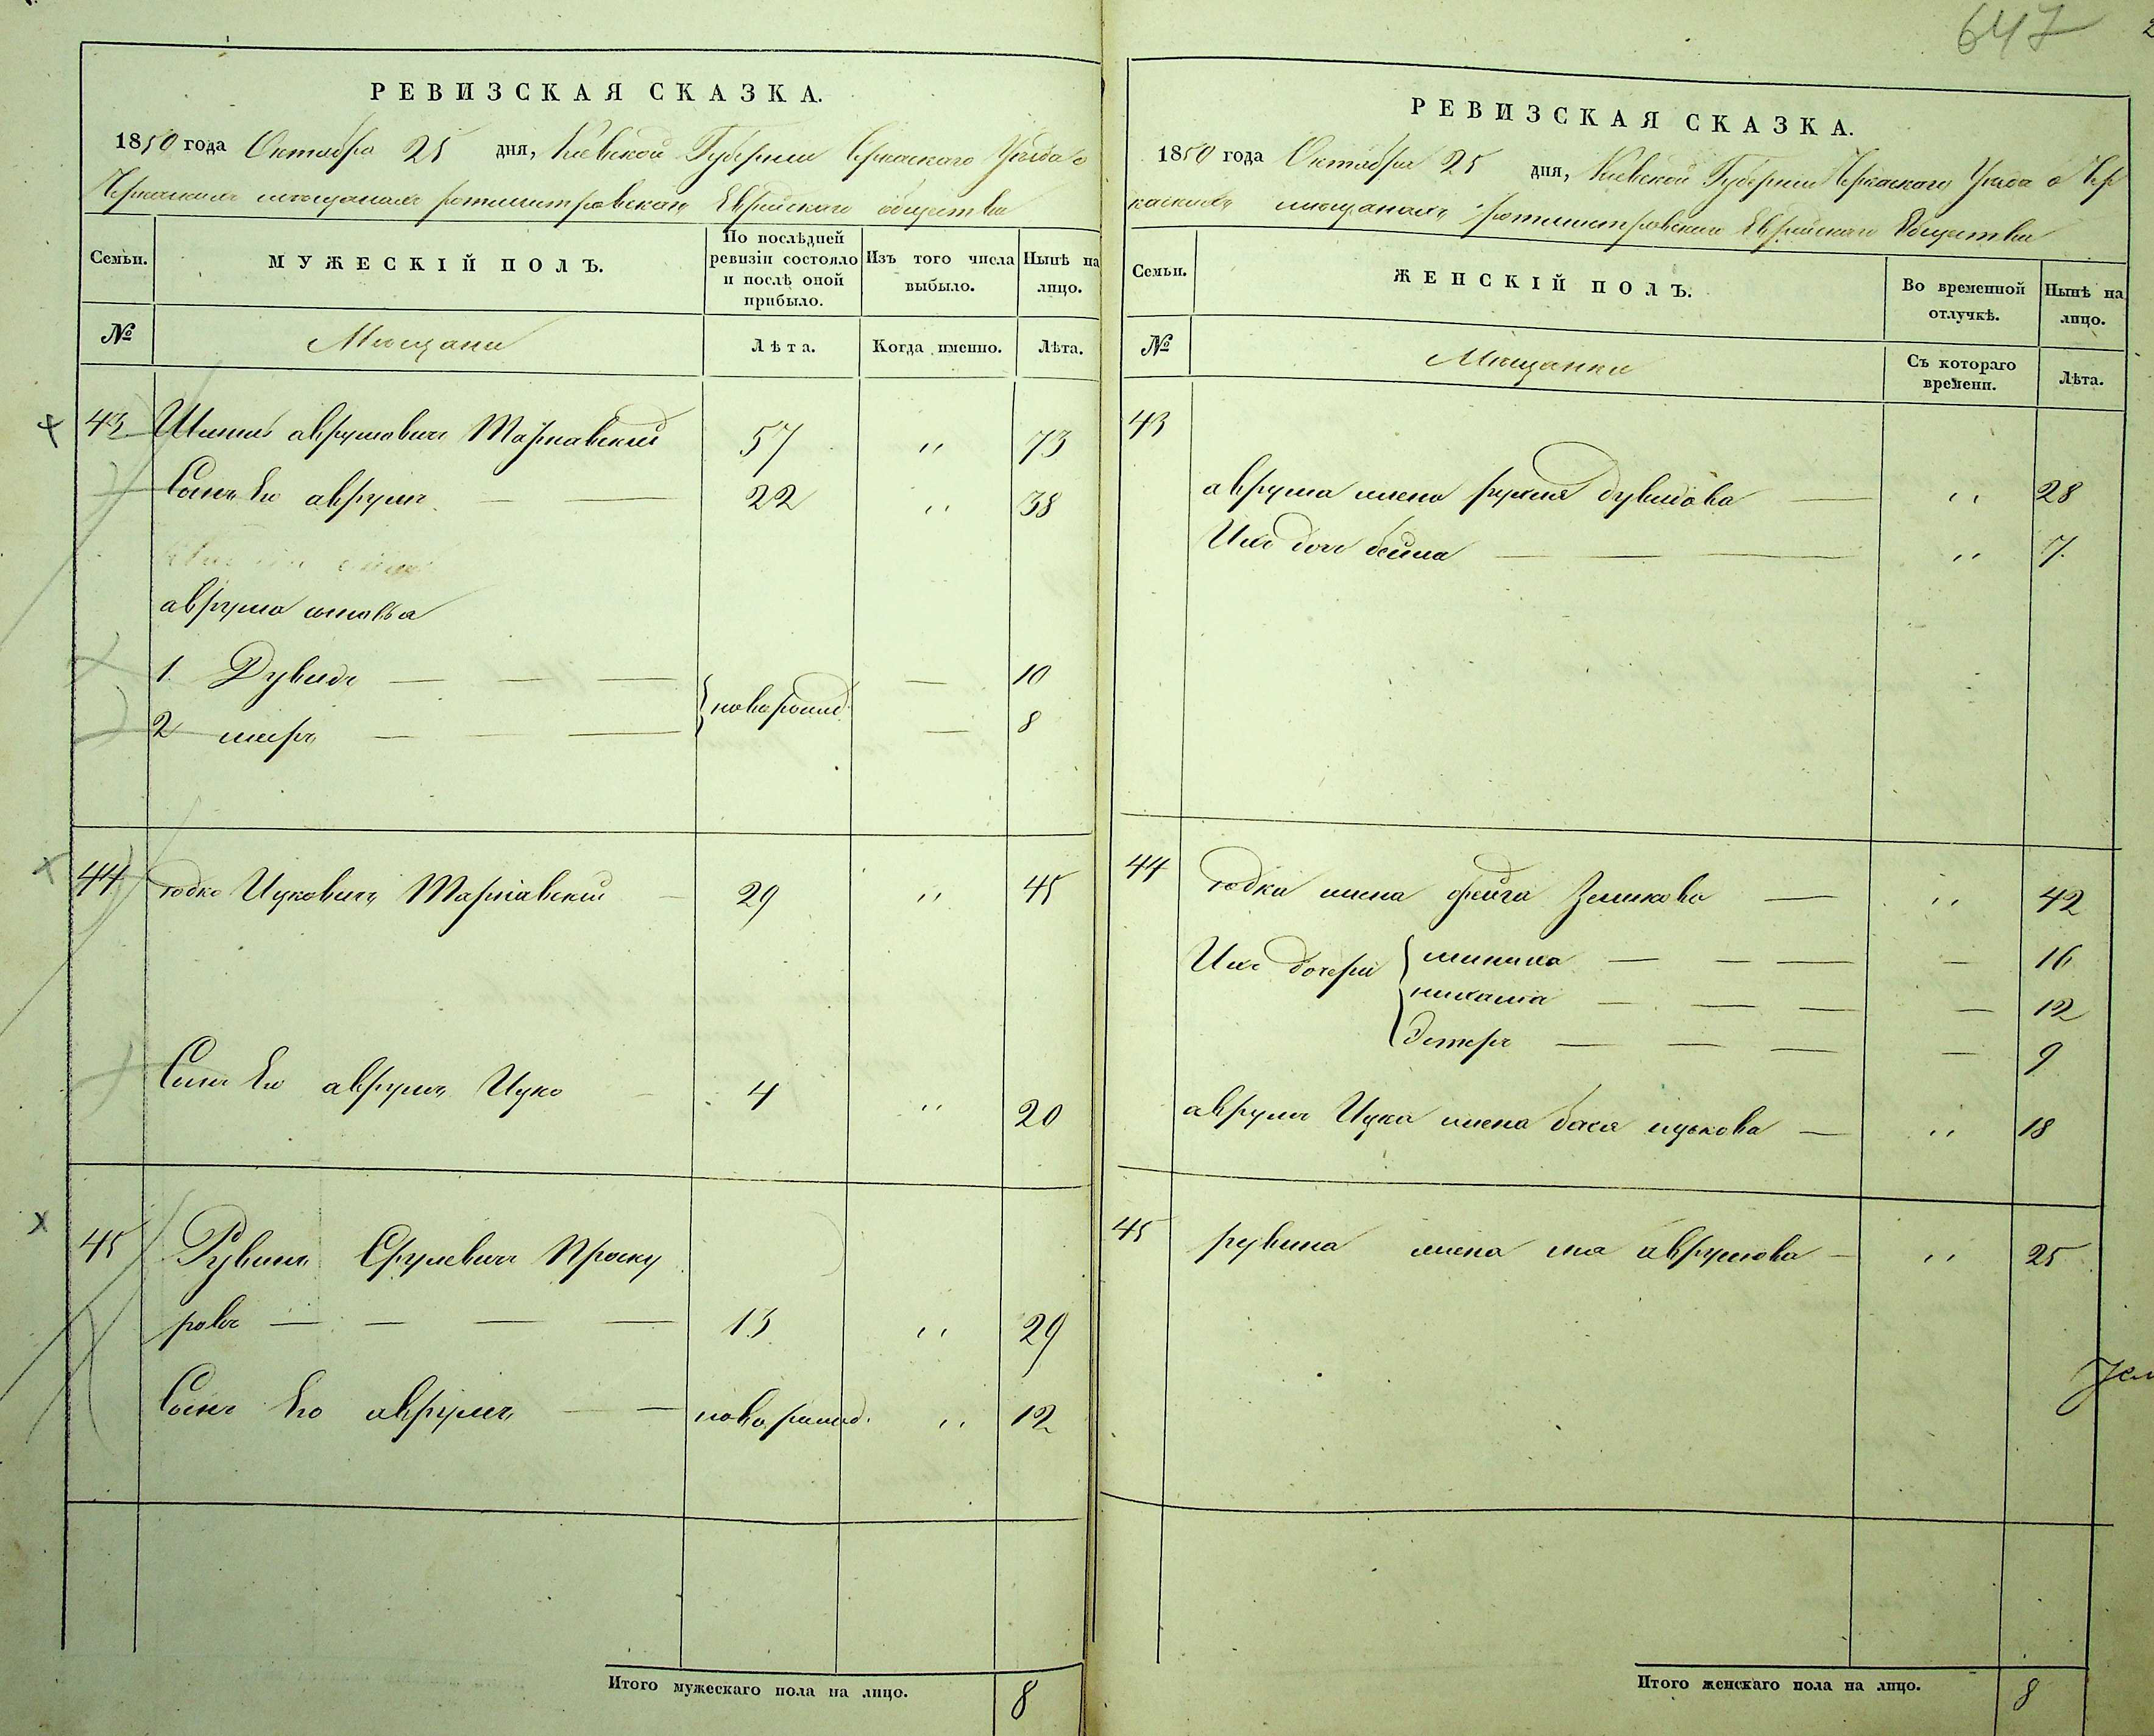 647
2
РЕВИЗСКАЯ СКАЗКА.
1850 года Октября 25 дня, Киевской Губернии Черкаскаго Уезда о
Черкаскихъ мещанахъ ротмистровскаго Еврейскаго общества
Семьи.
МУЖЕСКІЙ ПОЛЪ.
По послѣдней ревизіи состояло и послѣ оной прибыло.
Изъ того числа выбыло.
Нынѣ на лицо.
№
Мещане
Лѣта.
Когда именно.
Лѣта.
43 аврумовичъ Тарнавский 57 " 73
Сынъ Его аврумъ — — 22 " 38
аврума сыновья
1. Дувидъ — — — новорожд. — 10
2 меиръ — — — — 8
44 юдко Ицковичъ Тарнавский — 29 " 45
Сынъ Его аврумъ Ицко 4 " 20
45 Рувинъ Срулевичъ Проску
ровъ — — — — 13 " 29
Сынъ Его аврумъ — — новорожд. " 12
Итого мужескаго пола на лицо. 8
РЕВИЗСКАЯ СКАЗКА.
1850 года Октября 25 дня, Киевской Губернии Черкаскаго Уезда о Чер
каскихъ мещанахъ ротмистровскаго Еврейскаго Общества
Семьи.
ЖЕНСКІЙ ПОЛЪ.
Во временной отлучкѣ.
Нынѣ на лицо.
№
Мещанки
Съ котораго времени.
Лѣта.
43
аврума жена рухля дувидова — " 28
Ихъ дочь бейла — — " 7.
44 юдки жена фейга Зеликова — " 42
Ихъ дочери — — — — 16
— — — — 12
Эстеръ — — — — 9
аврумъ Ицка жена бася ицькова — " 18
45 рувина жена аврумова — " 25
Итого женскаго пола на лицо. 8